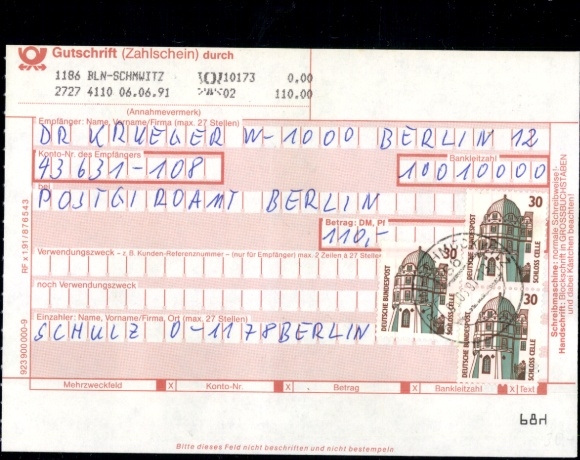 Gutschrift (Zahlschein) durch
1186 BLN-SCHMWITZ 10173 0.00
2727 4110 06.06.91 02 110.00
(Annahmevermerk)
Empfänger: Name, Vorname/Firma (max. 27 Stellen)
DR KRUEGER W-1000 BERLIN 12
Konto-Nr. des Empfängers Bankleitzahl
43631-108 10010000
bei
POSTGIROAMT BERLIN
Betrag: DM, Pf
110,-
Verwendungszweck – z. B. Kunden-Referenznummer – (nur für Empfänger) max. 2 Zeilen à 27 Stellen)
noch Verwendungszweck
Einzahler: Name, Vorname/Firma, Ort (max. 27 Stellen)
SCHULZ O-1178 BERLIN
Mehrzweckfeld X Konto-Nr. X Betrag X Bankleitzahl X Text
Bitte dieses Feld nicht beschriften und nicht bestempeln
RF x 1.91 / 876543
923 900 000-9
Schreibmaschine: normale Schreibweise!
Handschrift: Blockschrift in GROSSBUCHSTABEN
und dabei Kästchen beachten!
30
DEUTSCHE BUNDESPOST
SCHLOSS CELLE
30
DEUTSCHE BUNDESPOST
SCHLOSS CELLE
30
DEUTSCHE BUNDESPOST
SCHLOSS CELLE